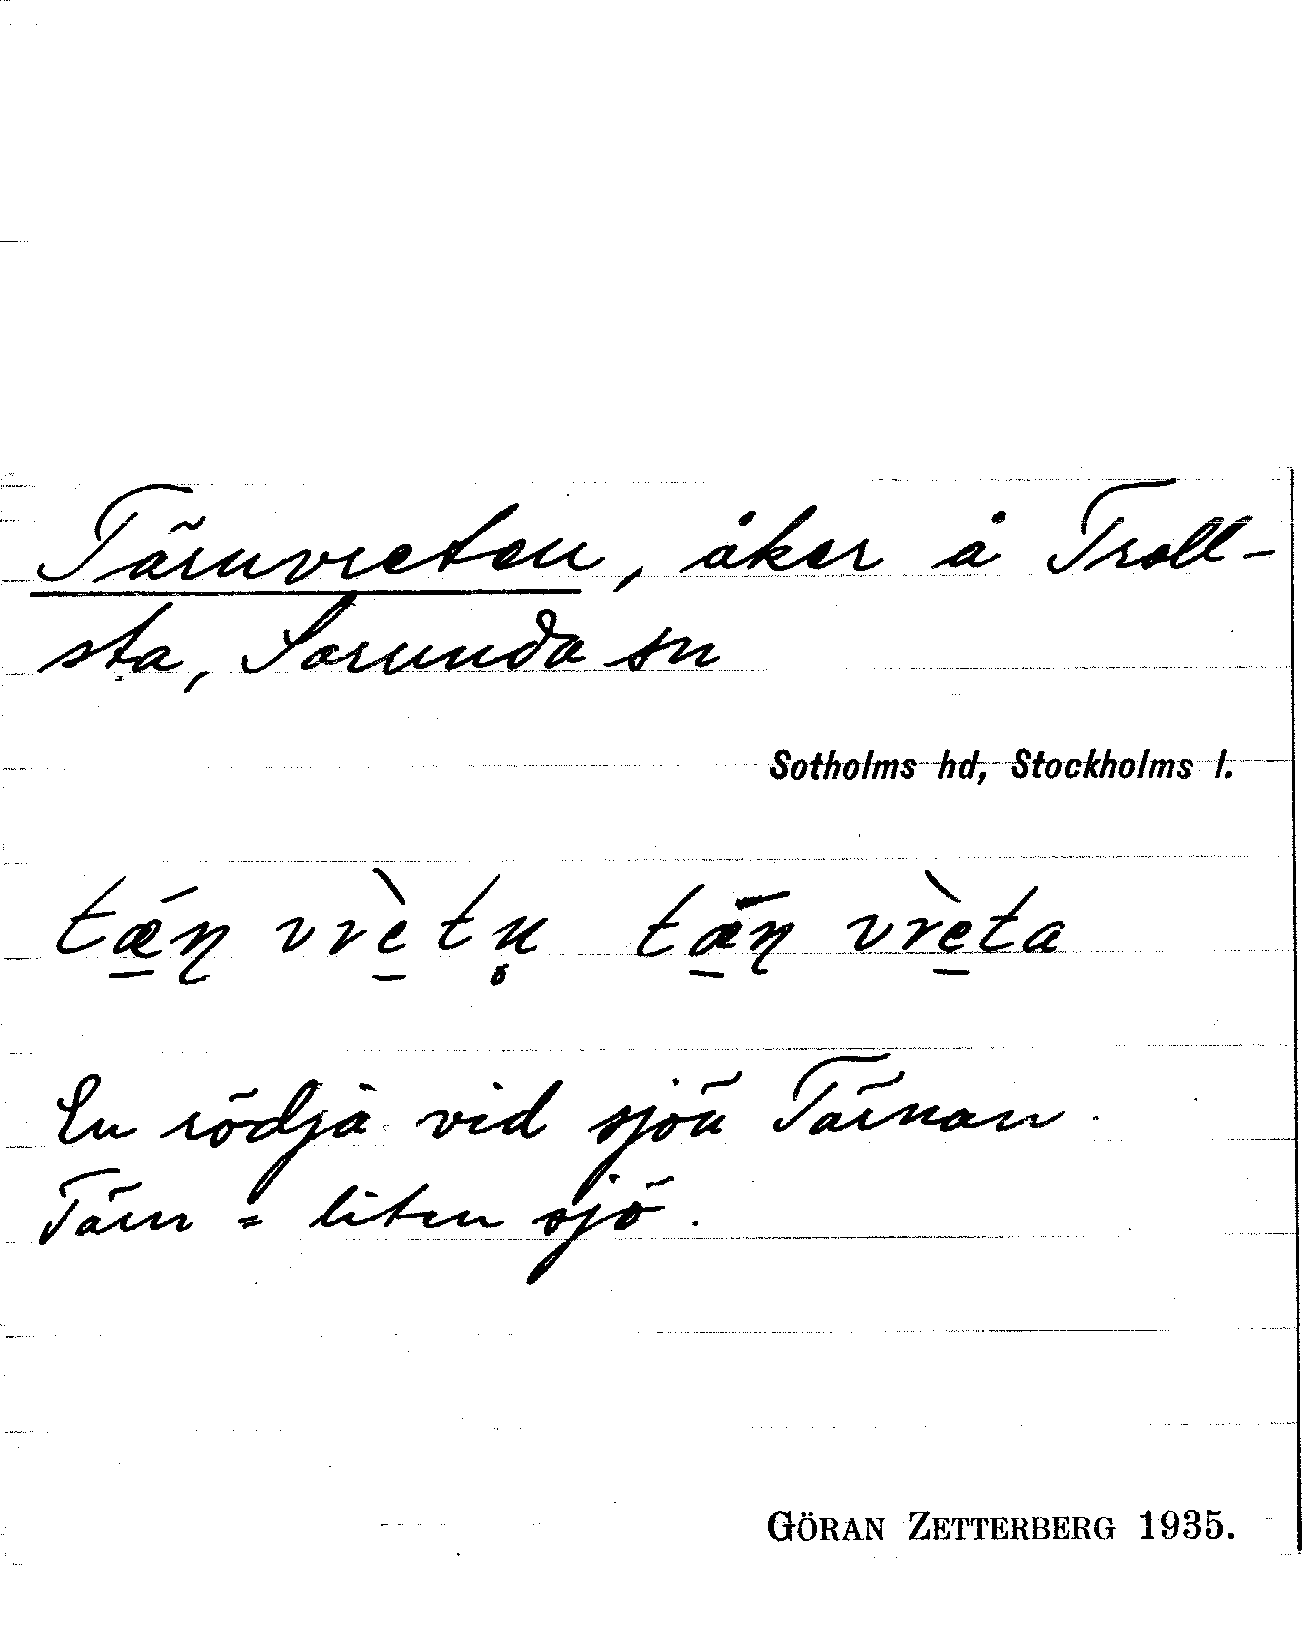 Tärnvreten, åker å Troll-
sta, Sorunda sn
Sotholms hd, Stockholms l.
tǽ̱ɳ vrè̱tn̥ tǣ̱ɳ vrè̱ta
En rödja vid sjön Tärnan.
Tärn = liten sjö.
GÖRAN ZETTERBERG 1935.